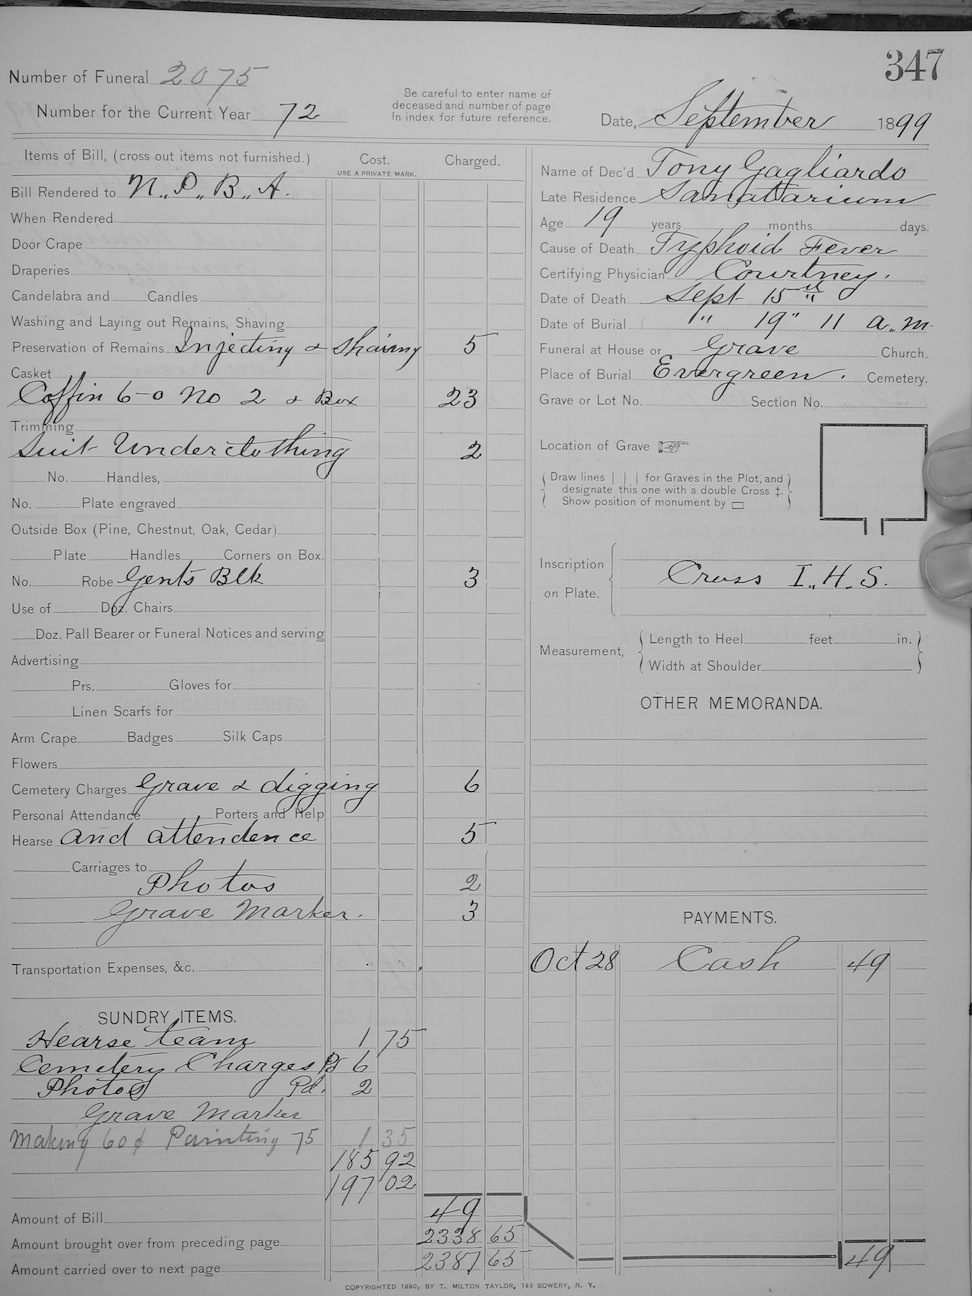 347
Number of Funeral 2075
Number for the Current Year 72
Be careful to enter name of
deceased and number of page
In index for future reference.
Date, September 1899
Items of Bill, (cross out items not furnished.) Cost. Charged.
USE A PRIVATE MARK.
Bill Rendered to N.P.B.A.
When Rendered
Door Crape
Draperies
Candelabra and Candles
Washing and Laying out Remains, Shaving
Preservation of Remains Injecting & Shaving 5
Casket
Coffin 6-0 No 2 & Box 23
Trimming
Suit Underclothing 2
No. Handles,
No. Plate engraved
Outside Box (Pine, Chestnut, Oak, Cedar)
Plate Handles Corners on Box.
No. Robe Gents Blk 3
Use of Doz. Chairs
Doz. Pall Bearer or Funeral Notices and serving
Advertising
Prs. Gloves for
Linen Scarfs for
Arm Crape Badges Silk Caps
Flowers
Cemetery Charges Grave & digging 6
Personal Attendance Porters and Help
Hearse and attendence 5
Carriages to
Photos 2
Grave Marker. 3
Transportation Expenses, &c.
SUNDRY ITEMS.
Hearse team 1 75
Cemetery Charges Pd 6
Photos Pd. 2
Grave Marker
Making 60¢ Painting 75 1 35
185 92
197 02
Amount of Bill 49
Amount brought over from preceding page 2338 65
Amount carried over to next page 2387 65
Name of Dec'd Tony Gagliardo
Late Residence Sanattarium
Age 19 years months days.
Cause of Death Typhoid Fever
Certifying Physician Courtney.
Date of Death Sept 15th
Date of Burial " 19" 11 a.m.
Funeral at House or Grave Church.
Place of Burial Evergreen. Cemetery.
Grave or Lot No. Section No.
Location of Grave
Draw lines | | | for Graves in the Plot, and
designate this one with a double Cross ‡.
Show position of monument by ▭
Inscription
on Plate.
Cross I.H.S.
Measurement, Length to Heel feet in.
Width at Shoulder
OTHER MEMORANDA.
PAYMENTS.
Oct 28 Cash 49
49
COPYRIGHTED 1890, BY T. MILTON TAYLOR, 143 BOWERY, N. Y.